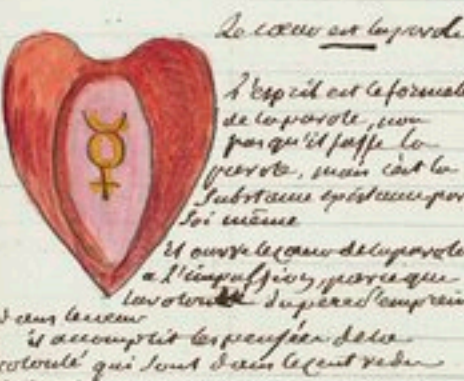 Le cœur est la parole
l'esprit est le formele
de la parole, non
pas qu'il fasse la
parole, mais c'est la
substance existance par
soi même
Il ouvre le cœur de la parole
a l'impression, parceque
la volonté du pere
dans le cœur
il accomplit les pensées de la
volonté qui sont dans le